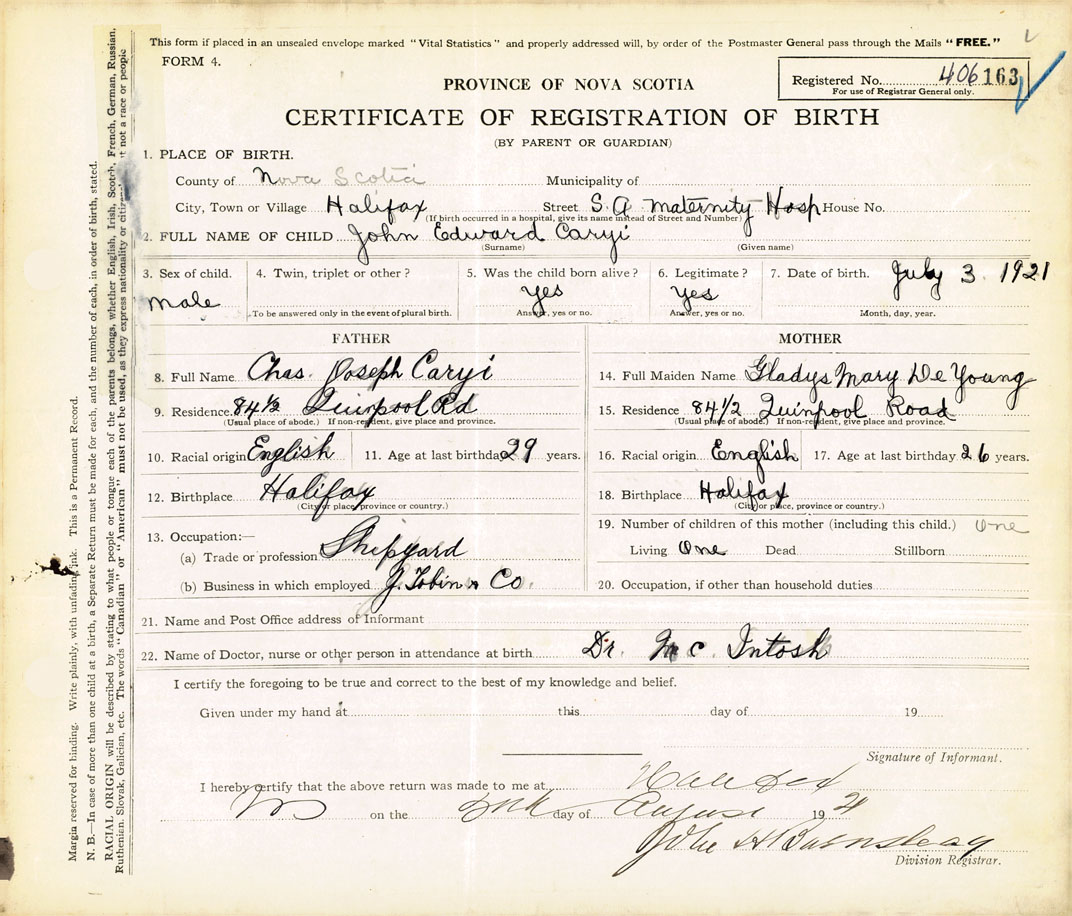 This form if placed in an unsealed envelope marked "Vital Statistics" and properly addressed will, by order of the Postmaster General pass through the Mails "FREE."
FORM 4.
Registered No. 406 163
For use of Registrar General only.
PROVINCE OF NOVA SCOTIA
CERTIFICATE OF REGISTRATION OF BIRTH
(BY PARENT OR GUARDIAN)
1. PLACE OF BIRTH.
County of Nova Scotia Municipality of
City, Town or Village Halifax Street S.A. Maternity Hosp House No.
(If birth occurred in a hospital, give its name instead of Street and Number)
2. FULL NAME OF CHILD John Edward Caryi
(Surname) (Given name)
3. Sex of child. 4. Twin, triplet or other? 5. Was the child born alive? 6. Legitimate? 7. Date of birth. July 3. 1921
Male Yes Yes
To be answered only in the event of plural birth. Answer, yes or no. Answer, yes or no. Month, day, year.
FATHER
8. Full Name Chas. Joseph Caryi
9. Residence 84½ Quinpool Rd
(Usual place of abode.) If non-resident, give place and province.
10. Racial origin English 11. Age at last birthday 29 years.
12. Birthplace Halifax
(City or place, province or country.)
13. Occupation:—
(a) Trade or profession Shipyard
(b) Business in which employed J. Tobin & Co.
MOTHER
14. Full Maiden Name Gladys Mary De Young
15. Residence 84½ Quinpool Road
(Usual place of abode.) If non-resident, give place and province.
16. Racial origin English 17. Age at last birthday 26 years.
18. Birthplace Halifax
(City or place, province or country.)
19. Number of children of this mother (including this child.) One
Living One Dead Stillborn
20. Occupation, if other than household duties
21. Name and Post Office address of Informant
22. Name of Doctor, nurse or other person in attendance at birth Dr. Mc Intosh
I certify the foregoing to be true and correct to the best of my knowledge and belief.
Given under my hand at this day of 19
Signature of Informant.
I hereby certify that the above return was made to me at Halifax
on the day of August 1921
Division Registrar.
Margin reserved for binding. Write plainly, with unfading ink. This is a Permanent Record.
N. B.—In case of more than one child at a birth, a Separate Return must be made for each, and the number of each, in order of birth, stated.
RACIAL ORIGIN will be described by stating to what people or tongue each of the parents belongs, whether English, Irish, Scotch, French, German, Russian,
Ruthenian, Slovak, Galician, etc. The words "Canadian" or "American" must not be used, as they express nationality or not a race or people